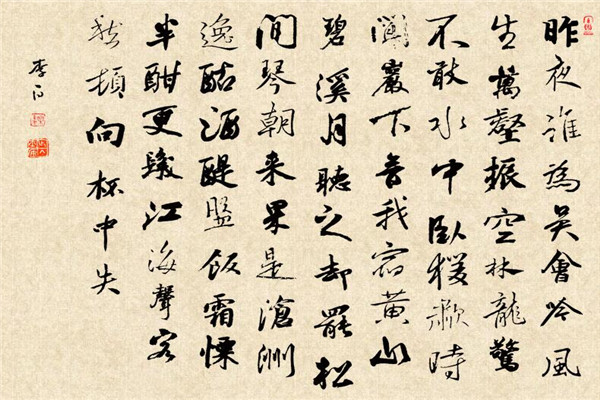 昨夜誰為吳會吟風
生萬壑振空林龍驚
不敢水中臥猨嘯時
聞巖下音我宿黃山
碧溪月聽之却罷松
間琴朝來果是滄洲
逸酤酒醍盤飯霜慄
半酣更發江海聲客
愁頓向杯中失
李